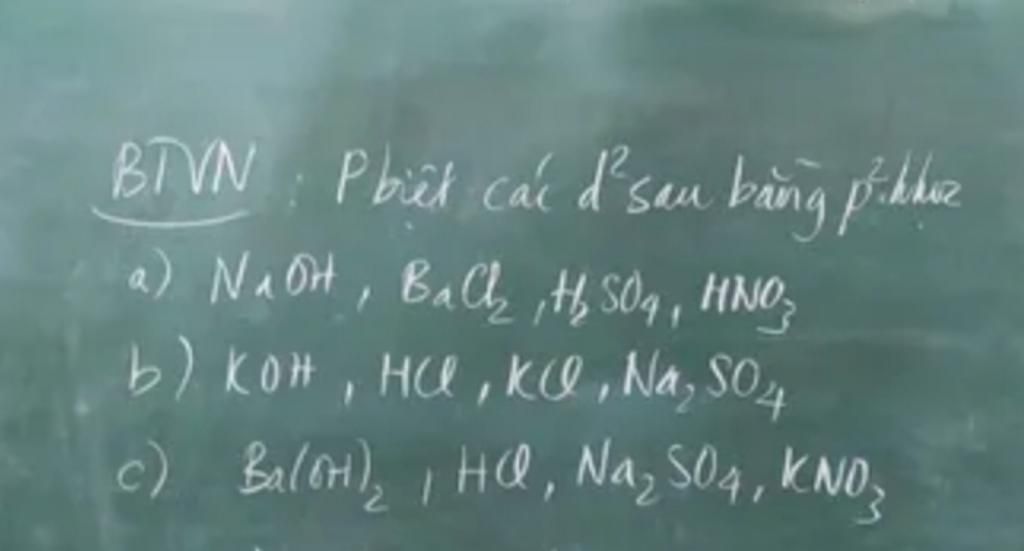 BTVN : Pbiệt các d² sau bằng p².hhọc
a) NaOH , BaCl₂ , H₂SO₄ , HNO₃
b) KOH , HCl , KCl , Na₂SO₄
c) Ba(OH)₂ , HCl , Na₂SO₄ , KNO₃